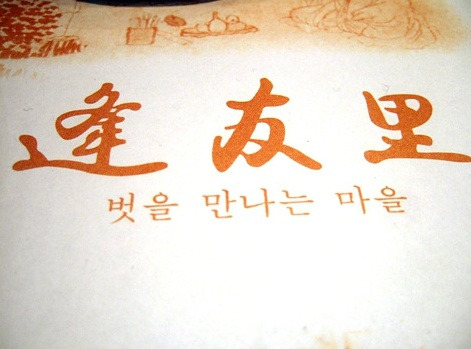 逢友里
벗을 만나는 마을